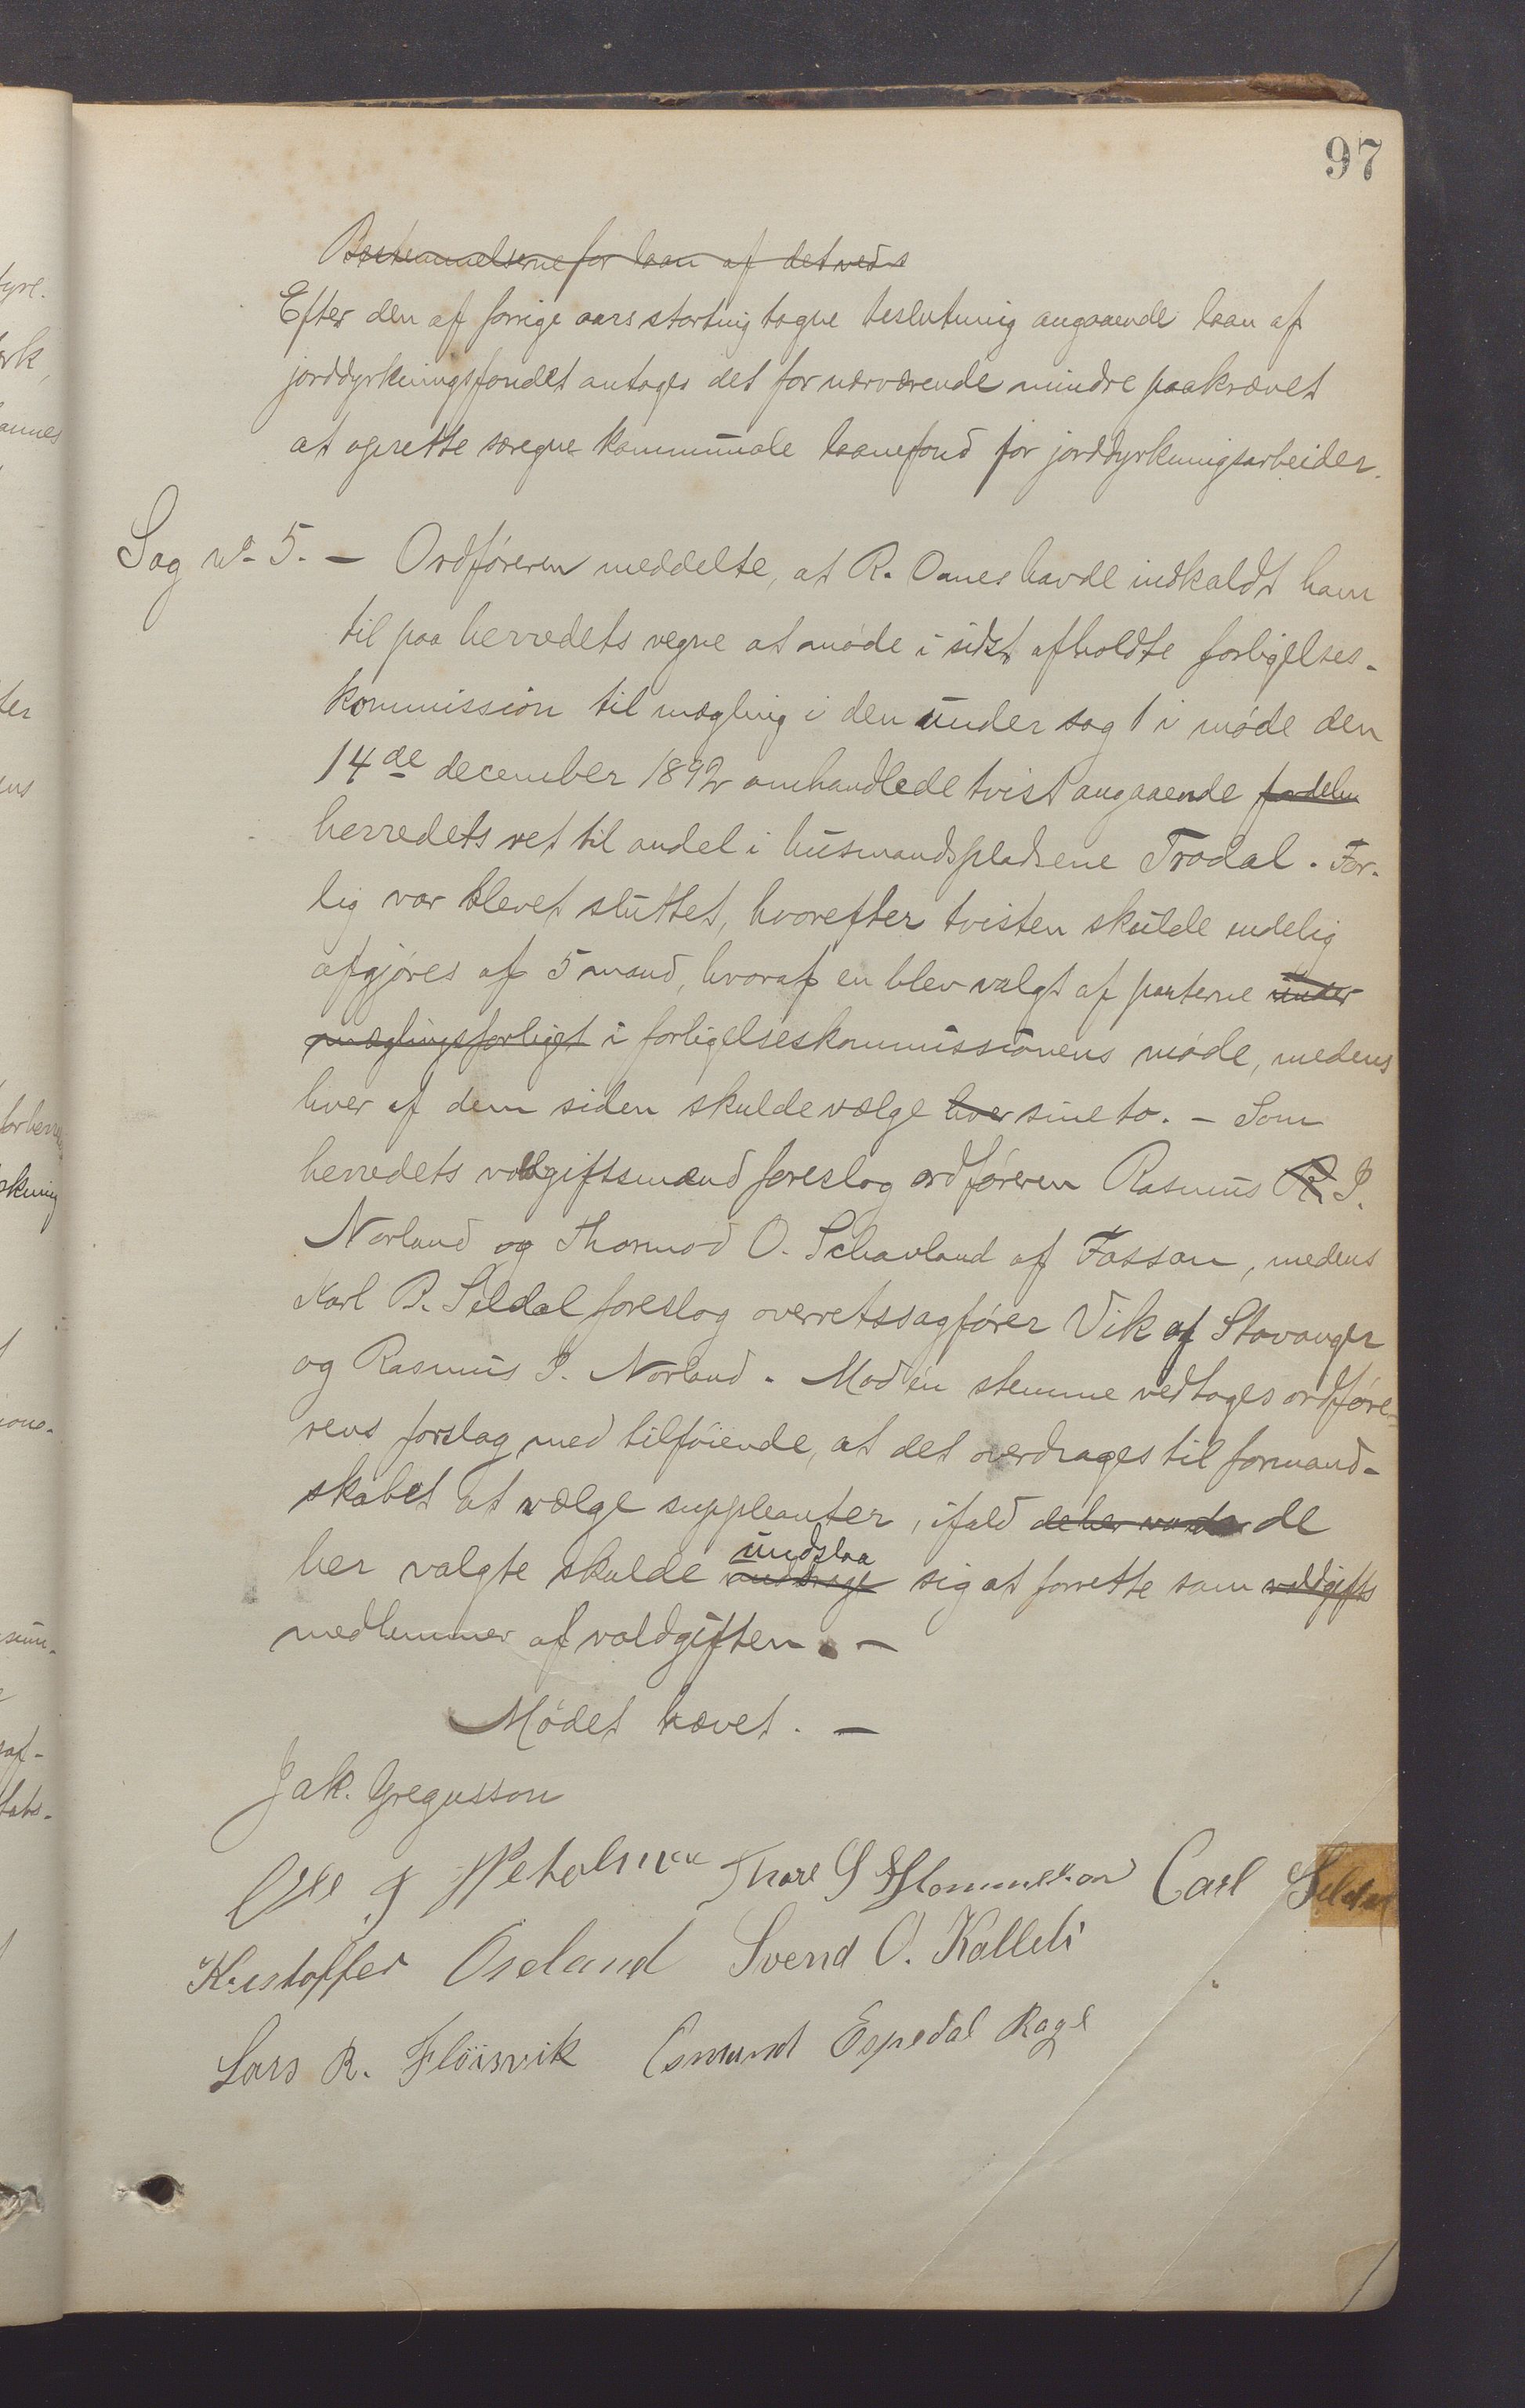 97
Bestemmelserne for laan af det ved s
Efter den af forrige aars storting tagne beslutning angaaende laan af
jorddyrkningsfondet antages det for nærværende mindre paakrævet
at oprette særegne kommunale laanefond for jorddyrkningsarbeider.
Sag No 5. – Ordføreren meddelte, at R. Oanes havde indkaldt ham
til paa herredets vegne at møde i sidst afholdte forligelses-
kommission til mægling i den under sag 1 i møde den
14de december 1892 omhandlede tvist angaaende fordelen
herredets ret til andel i husmandspladsene Trodal. For-
lig var blevet sluttet, hvorefter tvisten skulde endelig
afgjøres af 5 mand, hvoraf en blev valgt af parterne under
mæglingsforliget i forligelseskommissionens møde, medens
hver af dem siden skulde vælge hver sine to. – Som
herredets voldgiftsmænd foreslog ordføreren Rasmus R. I.
Norland og Thormod O. Schavland af Fossan, medens
Karl P. Seldal foreslog overretssagfører Vik af Stavanger
og Rasmus I. Norland. Mod én stemme vedtages ordføre-
rens forslag med tilføiende, at det overdrages til formand-
skabet at vælge suppleanter, ifald de her de
her valgte skulde unddrage undslaa sig at forrette som voldgifts
medlemmer af voldgiften. –
Mødet hævet. –
Jak. Gregusson
Ole J Thore S Carl Seldal
Kristoffer Öseland Svend O. Kalleli
Lars R. Flöisvik Osmund Espedal Rage